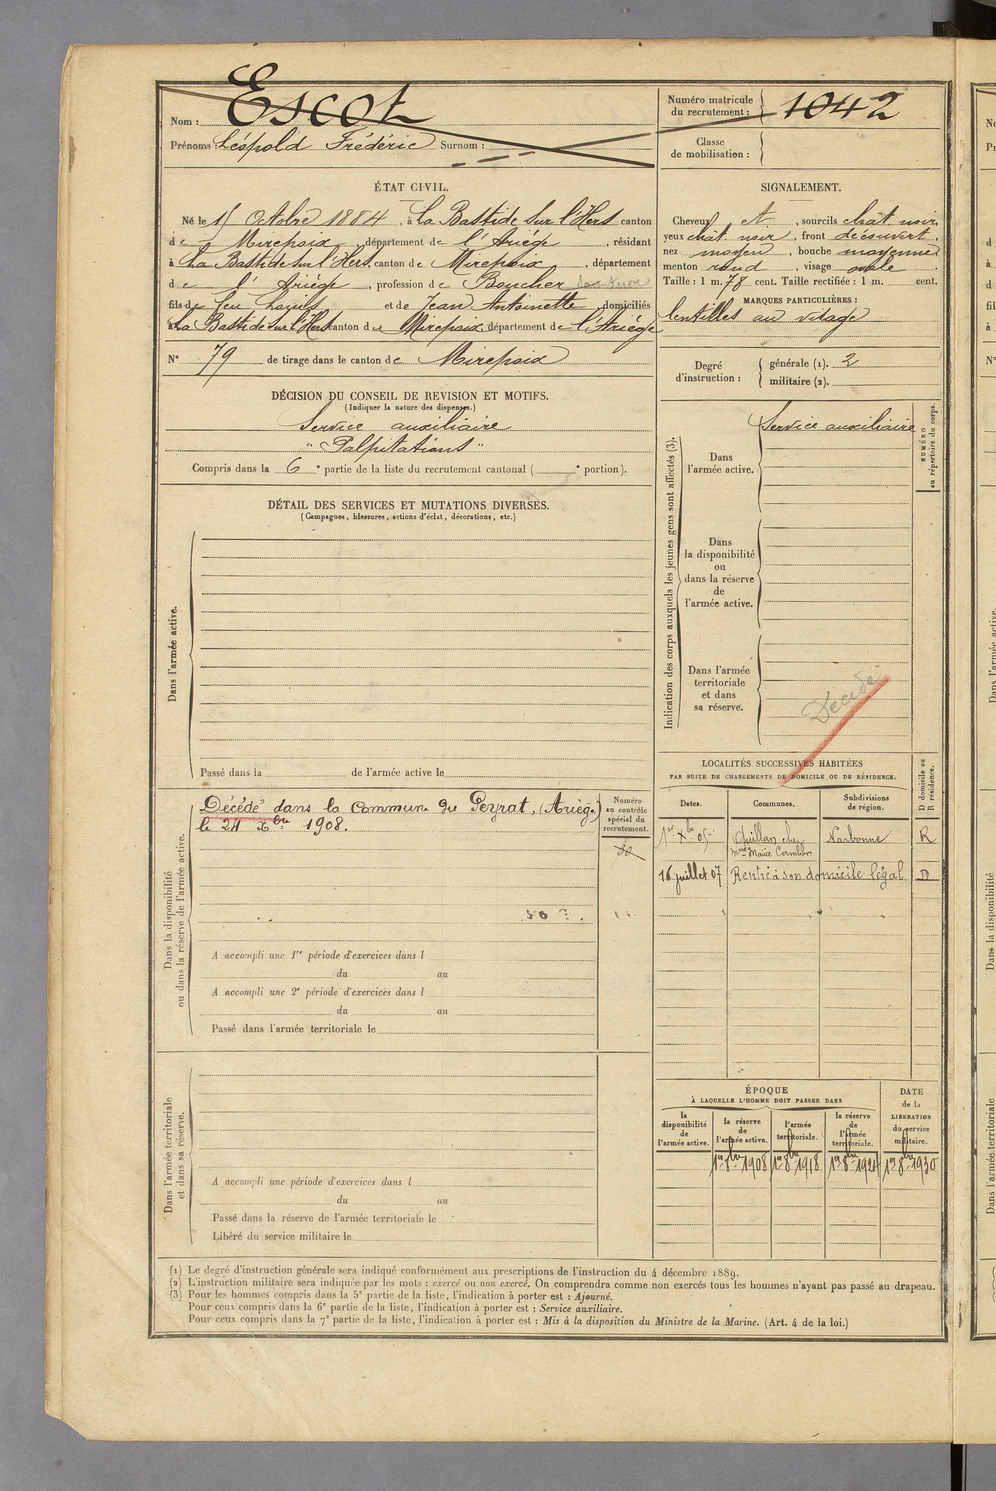 Nom : Escot
Prénoms : Léopold Frédéric Surnom :
Numéro matricule du recrutement : 1042
Classe de mobilisation :
ÉTAT CIVIL.
Né le 15 Octobre 1884, à La Bastide sur l'Hers canton
de Mirepoix, département de l'Ariège, résidant
à La Bastide sur l'Hers, canton de Mirepoix, département
de l'Ariège, profession de Boucher
fils de feu Louis et de Jean Antoinette, domiciliés
à La Bastide sur l'Hers canton de Mirepoix département de l'Ariège
N° 79 de tirage dans le canton de Mirepoix
SIGNALEMENT.
Cheveux dt, sourcils chât noir,
yeux chât noir, front découvert,
nez moyen, bouche moyenne
menton rond, visage ovale.
Taille : 1 m. 78 cent. Taille rectifiée : 1 m. cent.
MARQUES PARTICULIÈRES :
lentilles au visage
Degré d'instruction :
générale (1). 2
militaire (2).
DÉCISION DU CONSEIL DE REVISION ET MOTIFS.
(Indiquer la nature des dispenses.)
Service auxiliaire
"Palpitations"
Compris dans la 6e partie de la liste du recrutement cantonal ( e portion).
DÉTAIL DES SERVICES ET MUTATIONS DIVERSES.
(Campagnes, blessures, actions d'éclat, décorations, etc.)
Dans l'armée active.
Passé dans la de l'armée active le
Indication des corps auxquels les jeunes gens sont affectés (3).
Dans l'armée active.
Service auxiliaire
NUMÉRO au répertoire du corps.
Dans la disponibilité ou dans la réserve de l'armée active.
Dans l'armée territoriale et dans sa réserve.
Décédé
Dans la disponibilité ou dans la réserve de l'armée active.
Décédé dans la commune du Peyrat, (Ariège)
le 24 Xbre 1908.
Numéro au contrôle spécial du recrutement.
30
A accompli une 1re période d'exercices dans l
du au
A accompli une 2e période d'exercices dans l
du au
Passé dans l'armée territoriale le
LOCALITÉS SUCCESSIVES HABITÉES
PAR SUITE DE CHANGEMENTS DE DOMICILE OU DE RÉSIDENCE.
Dates. Communes. Subdivisions de région. D domicile ou R résidence.
1er Xbre 05 Quillan chez Mme Marie Cambon Narbonne R
16 juillet 07 Rentré à son domicile légal D
Dans l'armée territoriale et dans sa réserve.
A accompli une période d'exercices dans l
du au
Passé dans la réserve de l'armée territoriale le
Libéré du service militaire le
ÉPOQUE
À LAQUELLE L'HOMME DOIT PASSER DANS
la disponibilité de l'armée active. la réserve de l'armée active. l'armée territoriale. la réserve de l'armée territoriale. DATE de la LIBÉRATION du service militaire.
1er 8bre 1908 1er 8bre 1918 1er 8bre 1924 1er 8bre 1930
(1) Le degré d'instruction générale sera indiqué conformément aux prescriptions de l'instruction du 4 décembre 1889.
(2) L'instruction militaire sera indiquée par les mots : exercé ou non exercé. On comprendra comme non exercés tous les hommes n'ayant pas passé au drapeau.
(3) Pour les hommes compris dans la 5e partie de la liste, l'indication à porter est : Ajourné.
Pour ceux compris dans la 6e partie de la liste, l'indication à porter est : Service auxiliaire.
Pour ceux compris dans la 7e partie de la liste, l'indication à porter est : Mis à la disposition du Ministre de la Marine. (Art. 4 de la loi.)